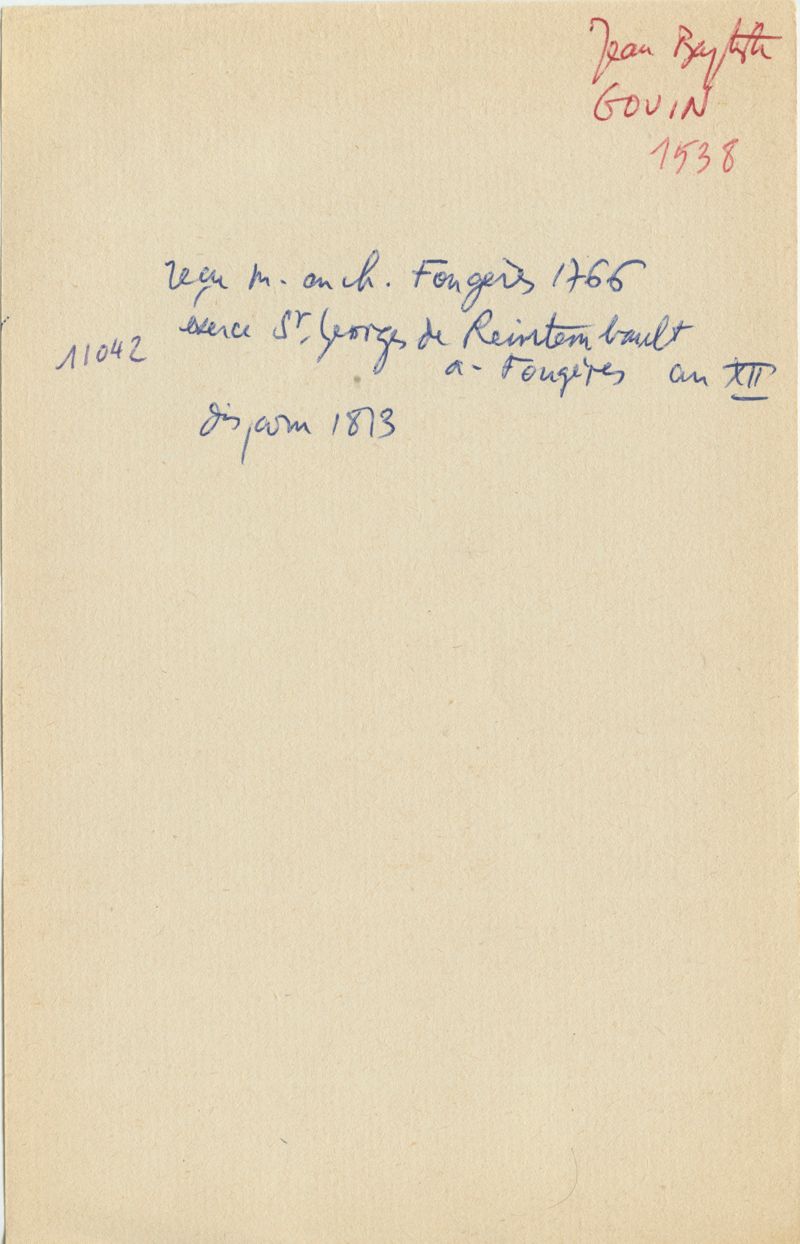 Jean Baptiste
GOUIN
1538
reçu m. en ch. Fougères 1766
exerce St. Georges de Reintembault
11042
a - Fougères an XII
disparu 1813